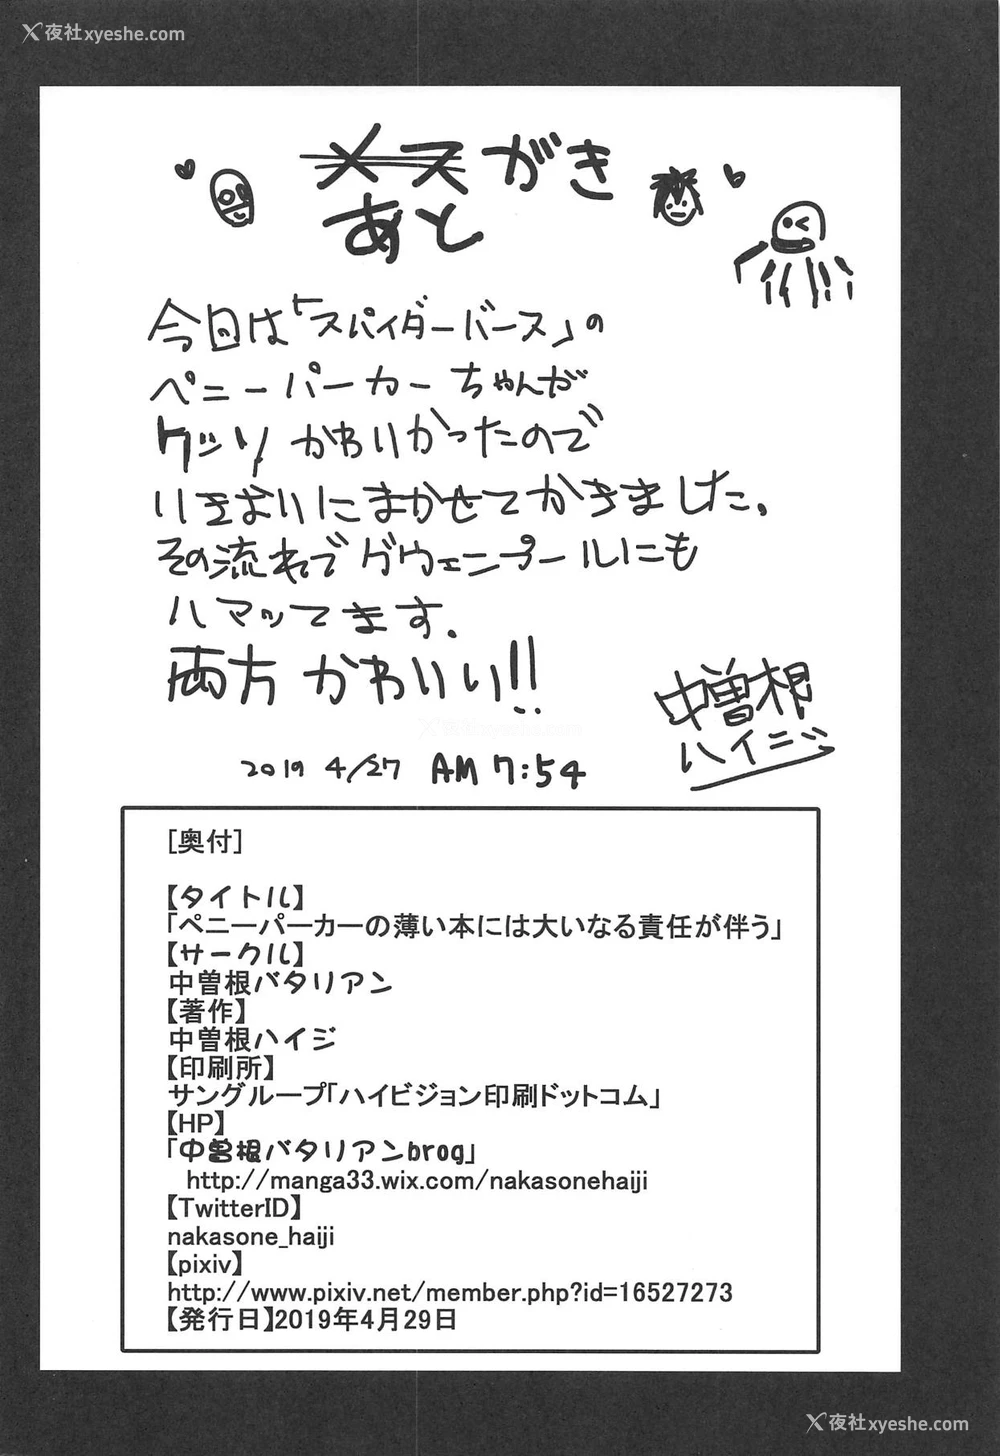 X夜社xyeshe.com
メスがき
あと
今回は「スパイダーバース」の
ペニーパーカーちゃんが
クッソかわいかったので
いきおいにまかせてかきました。
その流れでグウェンプールにも
ハマッてます。
両方かわいい!!
中曽根
ハイジ
X夜社xyeshe.com
2019 4/27 AM 7:54
[奥付]
【タイトル】
「ペニーパーカーの薄い本には大いなる責任が伴う」
【サークル】
中曽根バタリアン
【著作】
中曽根ハイジ
【印刷所】
サングループ「ハイビジョン印刷ドットコム」
【HP】
「中曽根バタリアンbrog」
http://manga33.wix.com/nakasonehaiji
【TwitterID】
nakasone_haiji
【pixiv】
http://www.pixiv.net/member.php?id=16527273
【発行日】2019年4月29日
X夜社xyeshe.com